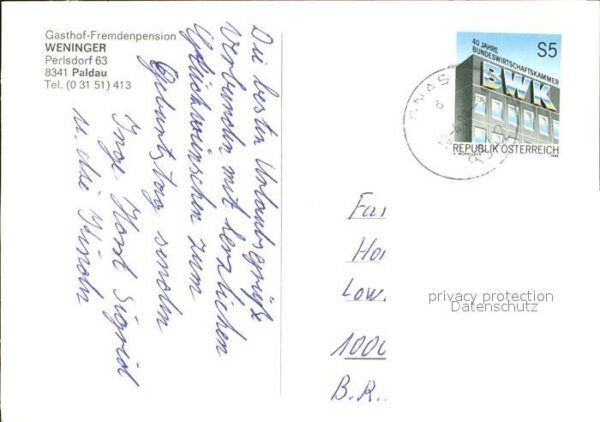 Gasthof-Fremdenpension
WENINGER
Perlsdorf 63
8341 Paldau
Tel. (0 31 51) 413
Die besten Urlaubsgrüße
Verbunden mit herzlichen
Glückwünschen zum
Geburtstag senden
Inge Horst Sigrid
u. die Kinder
40 JAHRE
BUNDESWIRTSCHAFTSKAMMER
S5
BWK
REPUBLIK ÖSTERREICH
GNAS
Fa
Ho
Low
1000
B.R.
privacy protection
Datenschutz